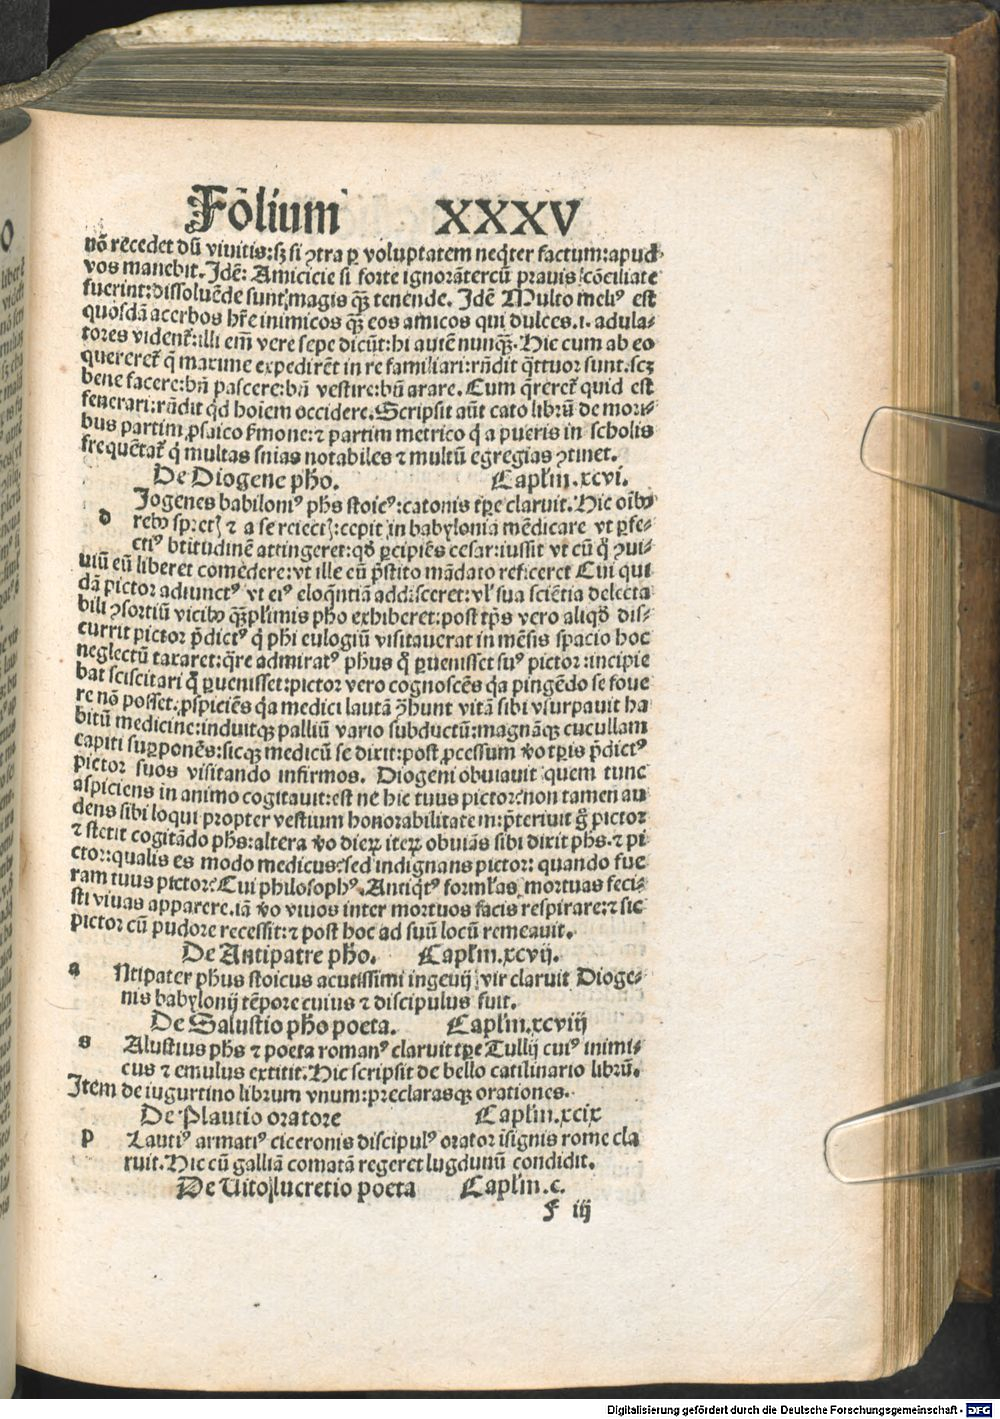 Fōlium XXXV
nō recedet dū viuitis:sꝫ si ꝯtra ꝑ voluptatem neqͥter factum:apud
vos manebit. Idē: Amicicie si forte ignorāter cū prauis cōciliate
fuerint:dissoluēde sunt magis qꝫ̄ tenende. Idē Multo meliꝰ est
quosdā acerbos hr̄e inimicos qꝫ̄ eos amicos qui dulces .i. adula⸗
tores vident̃:illi em̄ vere sepe dicūt:hi autē nunqꝫ̄. Hic cum ab eo
quereret̃ q̄ maxime expedirēt in re familiari:rn̄dit qͣttuor sunt.scꝫ
bene facere:bn̄ pascere:bn̄ vestire:bn̄ arare. Cum qͥreret̃ quid est
fenerari:rn̄dit qd̓ hoīem occidere. Scripsit aūt cato librū de mori⸗
bus partim ꝓsaico ẜmone:⁊ partim metrico q̄ a pueris in scholis
frequētat̃ q̄ multas sn̄ias notabiles ⁊ multū egregias ꝯtinet.
De Diogene ph̄o. Capl̓m.xcvi.
d Iogenes babiloniꝰ ph̄s stoicꝰ:catonis tꝑe claruit. Hic oībꝰ
rebꝰ spret̃ ⁊ a se reiect̃:cepit in babylonia mēdicare vt ꝑfe⸗
ctiꝰ btītudinē attingeret:qd̓ ꝑcipiēs cesar:iussit vt cū q̄ ꝯui⸗
uiū eū liberet comedere:vt ille eū p̄stito mādato reficeret Cui qui
dā pictor adiunctꝰ vt eiꝰ eloqn̄tiā addisceret:vl̓ sua sciētia delecta
bili ꝯsortiū vicibꝰ qꝫ̄pl̓imis ph̄o exhiberet:post tp̄s vero aliqd̓ dis⸗
currit pictor p̄dictꝰ q̄ ph̄i eulogiū visitauerat in mēsis spacio hoc
neglectū taxaret:qͣre admiratꝰ ph̄us q̄ ꝑuenisset suꝰ pictor:incipie
bat sciscitari q̄ ꝑuenisset:pictor vero cognoscēs qͣ pingēdo se foue
re nō posset:ꝓspiciēs qͣ medici lautā ꝯh̄unt vitā sibi vsurpauit ha
bitū medicine:induitqꝫ palliū vario subductū:magnāqꝫ cucullam
capiti suꝑponēs:sicqꝫ medicū se dixit:post ꝓcessum ꝟo tꝑis p̄dictꝰ
pictor suos visitando infirmos. Diogeni obuiauit quem tunc
aspiciens in animo cogitauit:est ne hic tuus pictor?non tamen au
dens sibi loqui propter vestium honorabilitatem:p̄teriuit g̊ pictor
⁊ stetit cogitādo ph̄s:altera ꝟo dieꝝ iteꝝ obuiās sibi dixit ph̄s.⁊ pi
ctor:qualis es modo medicus?sed indignans pictor: quando fue
ram tuus pictor?Cui philosophꝰ. Antiqͥtꝰ forml̓as mortuas feci⸗
sti viuas apparere.iā ꝟo viuos inter mortuos facis respirare:⁊ sic
pictor cū pudore recessit:⁊ post hoc ad suū locū remeauit.
De Antipatre ph̄o. Capl̓m.xcvij.
a Ntipater ph̄us stoicus acutissimi ingenij vir claruit Dioge⸗
nis babylonij tēpore cuius ⁊ discipulus fuit.
De Salustio ph̄o poeta. Capl̓m.xcviij
s Alustius ph̄s ⁊ poeta romanꝰ claruit tꝑe Tullij cuiꝰ inimi⸗
cus ⁊ emulus extitit. Hic scripsit de bello catilinario librū.
Item de iugurtino librum vnum:preclarasqꝫ orationes.
De Plautio oratore Capl̓m.xcix
p Lautiꝰ armatiꝰ ciceronis discipulꝰ orator isignis rome cla
ruit. Hic cū galliā comatā regeret lugdunū condidit.
De Tito lucretio poeta Capl̓m.c.
f iij
Digitalisierung gefördert durch die Deutsche Forschungsgemeinschaft - DFG